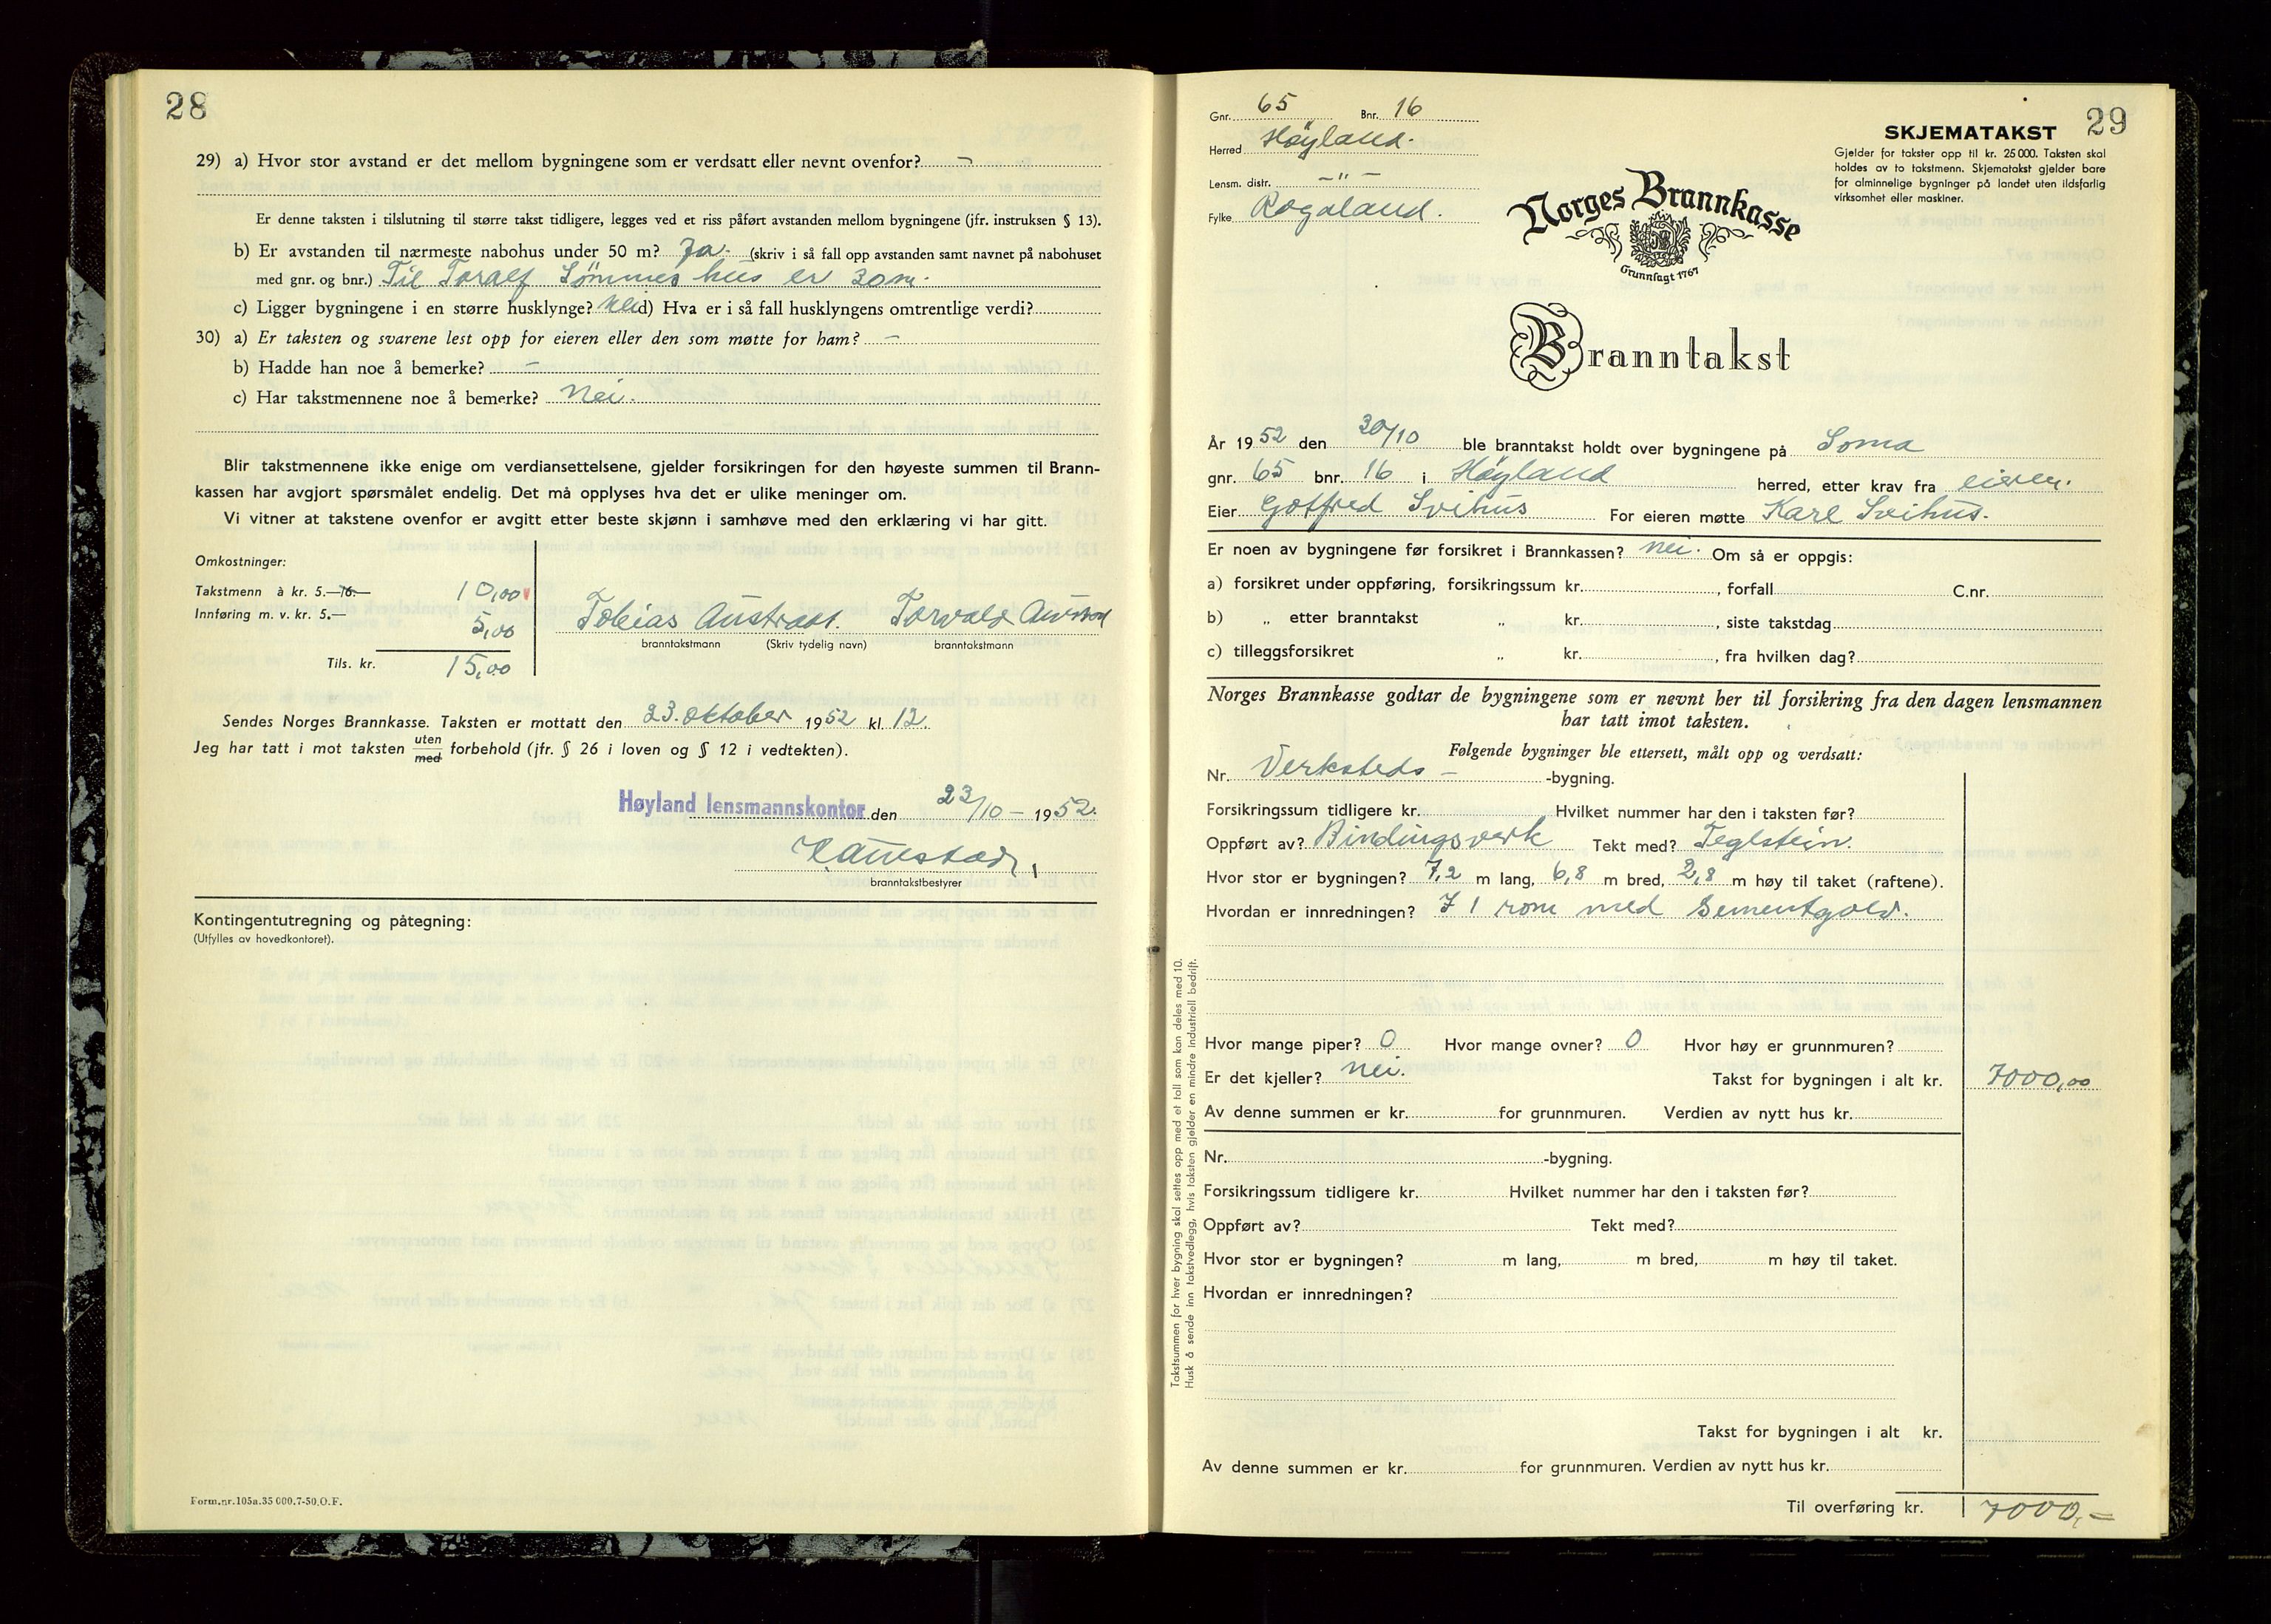 28
29) a) Hvor stor avstand er det mellom bygningene som er verdsatt eller nevnt ovenfor? -
Er denne taksten i tilslutning til større takst tidligere, legges ved et riss påført avstanden mellom bygningene (jfr. instruksen § 13).
b) Er avstanden til nærmeste nabohus under 50 m? Ja. (skriv i så fall opp avstanden samt navnet på nabohuset
med gnr. og bnr.) Til Toralf Sömmes hus er 30 m.
c) Ligger bygningene i en større husklynge? Nei d) Hva er i så fall husklyngens omtrentlige verdi?
30) a) Er taksten og svarene lest opp for eieren eller den som møtte for ham? -
b) Hadde han noe å bemerke? -
c) Har takstmennene noe å bemerke? Nei.
Blir takstmennene ikke enige om verdiansettelsene, gjelder forsikringen for den høyeste summen til Brann-
kassen har avgjort spørsmålet endelig. Det må opplyses hva det er ulike meninger om.
Vi vitner at takstene ovenfor er avgitt etter beste skjønn i samhøve med den erklæring vi har gitt.
Omkostninger:
Takstmenn à kr. 5.—10.— 10,00
Innføring m. v. kr. 5.— 5,00
Tils. kr. 15,00
Tobias Austraat. Torvald
branntakstmann (Skriv tydelig navn) branntakstmann
Sendes Norges Brannkasse. Taksten er mottatt den 23. oktober 1952 kl. 12.
Jeg har tatt i mot taksten uten
med forbehold (jfr. § 26 i loven og § 12 i vedtekten).
Høyland lensmannskontor den 23/10 - 1952.
branntakstbestyrer
Kontingentutregning og påtegning:
(Utfylles av hovedkontoret).
Form.nr.105a.35 000.7-50.O.F.
29
Gnr. 65 Bnr. 16
Herred Höyland.
Lensm. distr. -"-
Fylke Rogaland.
SKJEMATAKST
Gjelder for takster opp til kr. 25 000. Taksten skal
holdes av to takstmenn. Skjematakst gjelder bare
for alminnelige bygninger på landet uten ildsfarlig
virksomhet eller maskiner.
Norges Brannkasse
Grunnlagt 1767
Branntakst
År 1952 den 30/10 ble branntakst holdt over bygningene på Soma
gnr. 65 bnr. 16 i Höyland herred, etter krav fra eieren.
Eier Gotfred Svihus For eieren møtte Karl Svihus.
Er noen av bygningene før forsikret i Brannkassen? nei. Om så er oppgis:
a) forsikret under oppføring, forsikringssum kr. , forfall C.nr.
b) „ etter branntakst „ kr. , siste takstdag
c) tilleggsforsikret „ kr. , fra hvilken dag?
Norges Brannkasse godtar de bygningene som er nevnt her til forsikring fra den dagen lensmannen
har tatt imot taksten.
Følgende bygninger ble ettersett, målt opp og verdsatt:
Nr. Verksteds - -bygning.
Forsikringssum tidligere kr. Hvilket nummer har den i taksten før?
Oppført av? Bindingsverk Tekt med? Teglstein.
Hvor stor er bygningen? 7,2 m lang, 6,8 m bred, 2,8 m høy til taket (raftene).
Hvordan er innredningen? I 1 rom med Sementgolv.
Hvor mange piper? 0 Hvor mange ovner? 0 Hvor høy er grunnmuren?
Er det kjeller? nei. Takst for bygningen i alt kr. 7000,00
Av denne summen er kr. for grunnmuren. Verdien av nytt hus kr.
Nr. -bygning.
Forsikringssum tidligere kr. Hvilket nummer har den i taksten før?
Oppført av? Tekt med?
Hvor stor er bygningen? m lang, m bred, m høy til taket.
Hvordan er innredningen?
Takst for bygningen i alt kr.
Av denne summen er kr. for grunnmuren. Verdien av nytt hus kr.
Til overføring kr. 7000,-
Takstsummen for hver bygning skal settes opp med et tall som kan deles med 10.
Husk å sende inn takstvedlegg, hvis taksten gjelder en mindre industriell bedrift.